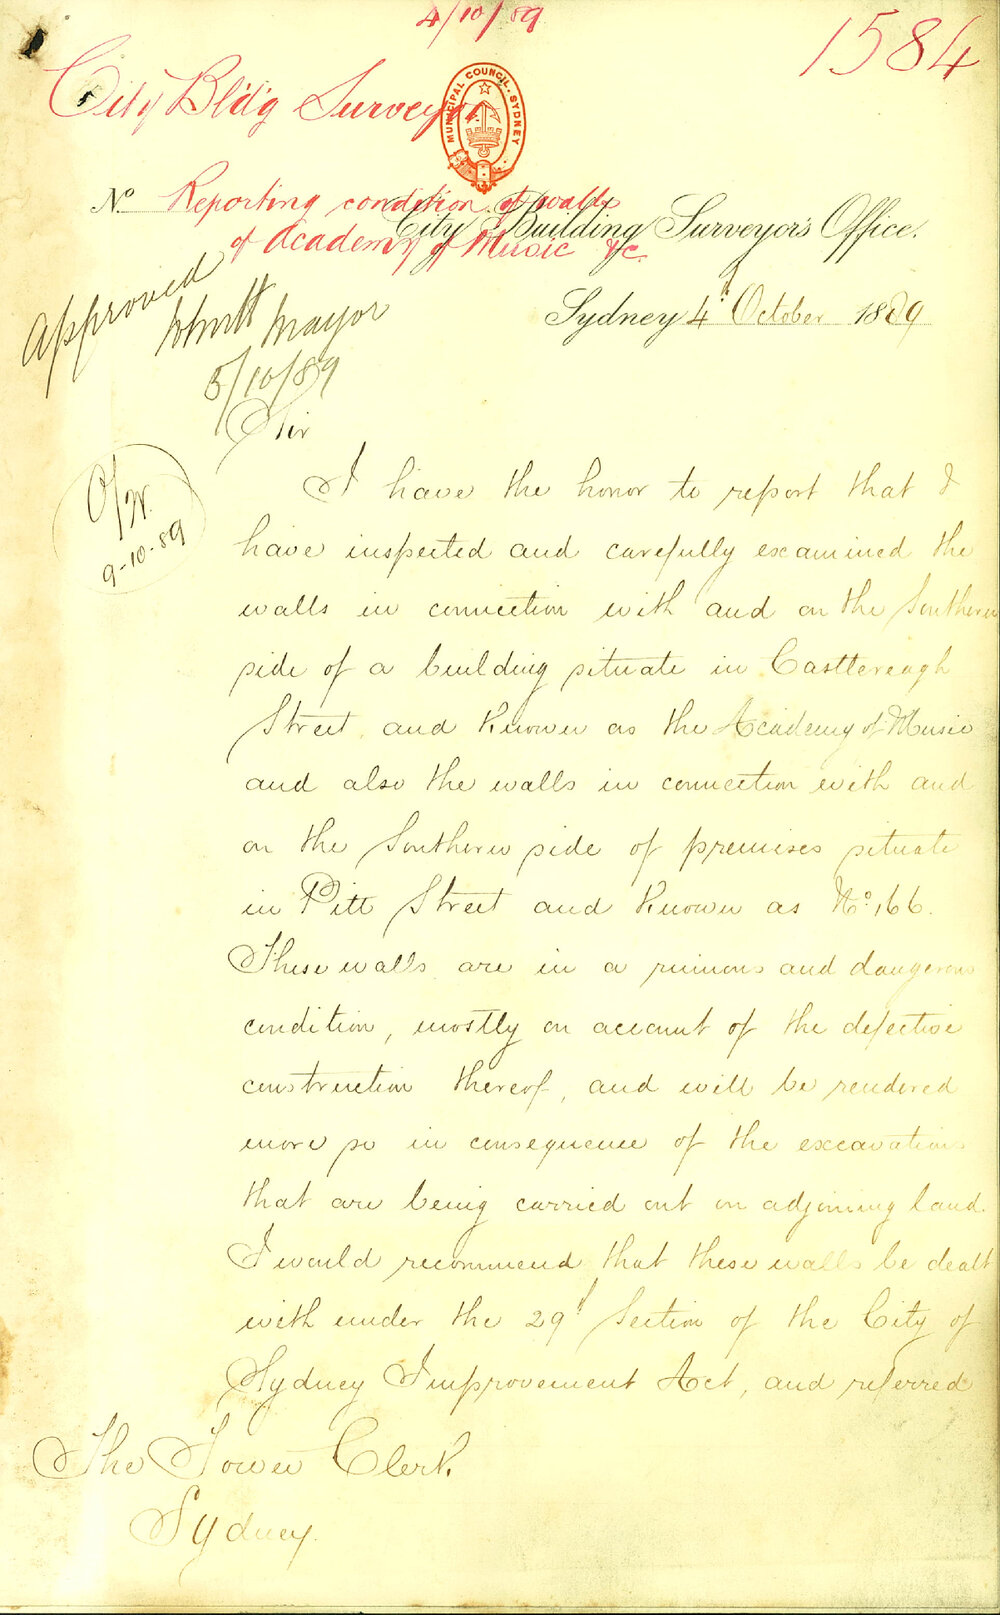 4/10/89
1584
City Bldg Surveyor
MUNICIPAL COUNCIL · SYDNEY
No Reporting condition of walls
of Academy of Music &c.
City Building Surveyor's Office.
Approved
Mayor
5/10/89
Sydney 4th October 1889
9-10-89
Sir
I have the honor to report that I
have inspected and carefully examined the
walls in connection with and on the Southern
side of a building situate in Castlereagh
Street, and known as the Academy of Music
and also the walls in connection with and
on the Southern side of premises situate
in Pitt Street and known as No. 166.
These walls are in a ruinous and dangerous
condition, mostly on account of the defective
construction thereof, and will be rendered
more so in consequence of the excavations
that are being carried out on adjoining land.
I would recommend that these walls be dealt
with under the 29th Section of the City of
Sydney Improvement Act, and referred
The Town Clerk.
Sydney.